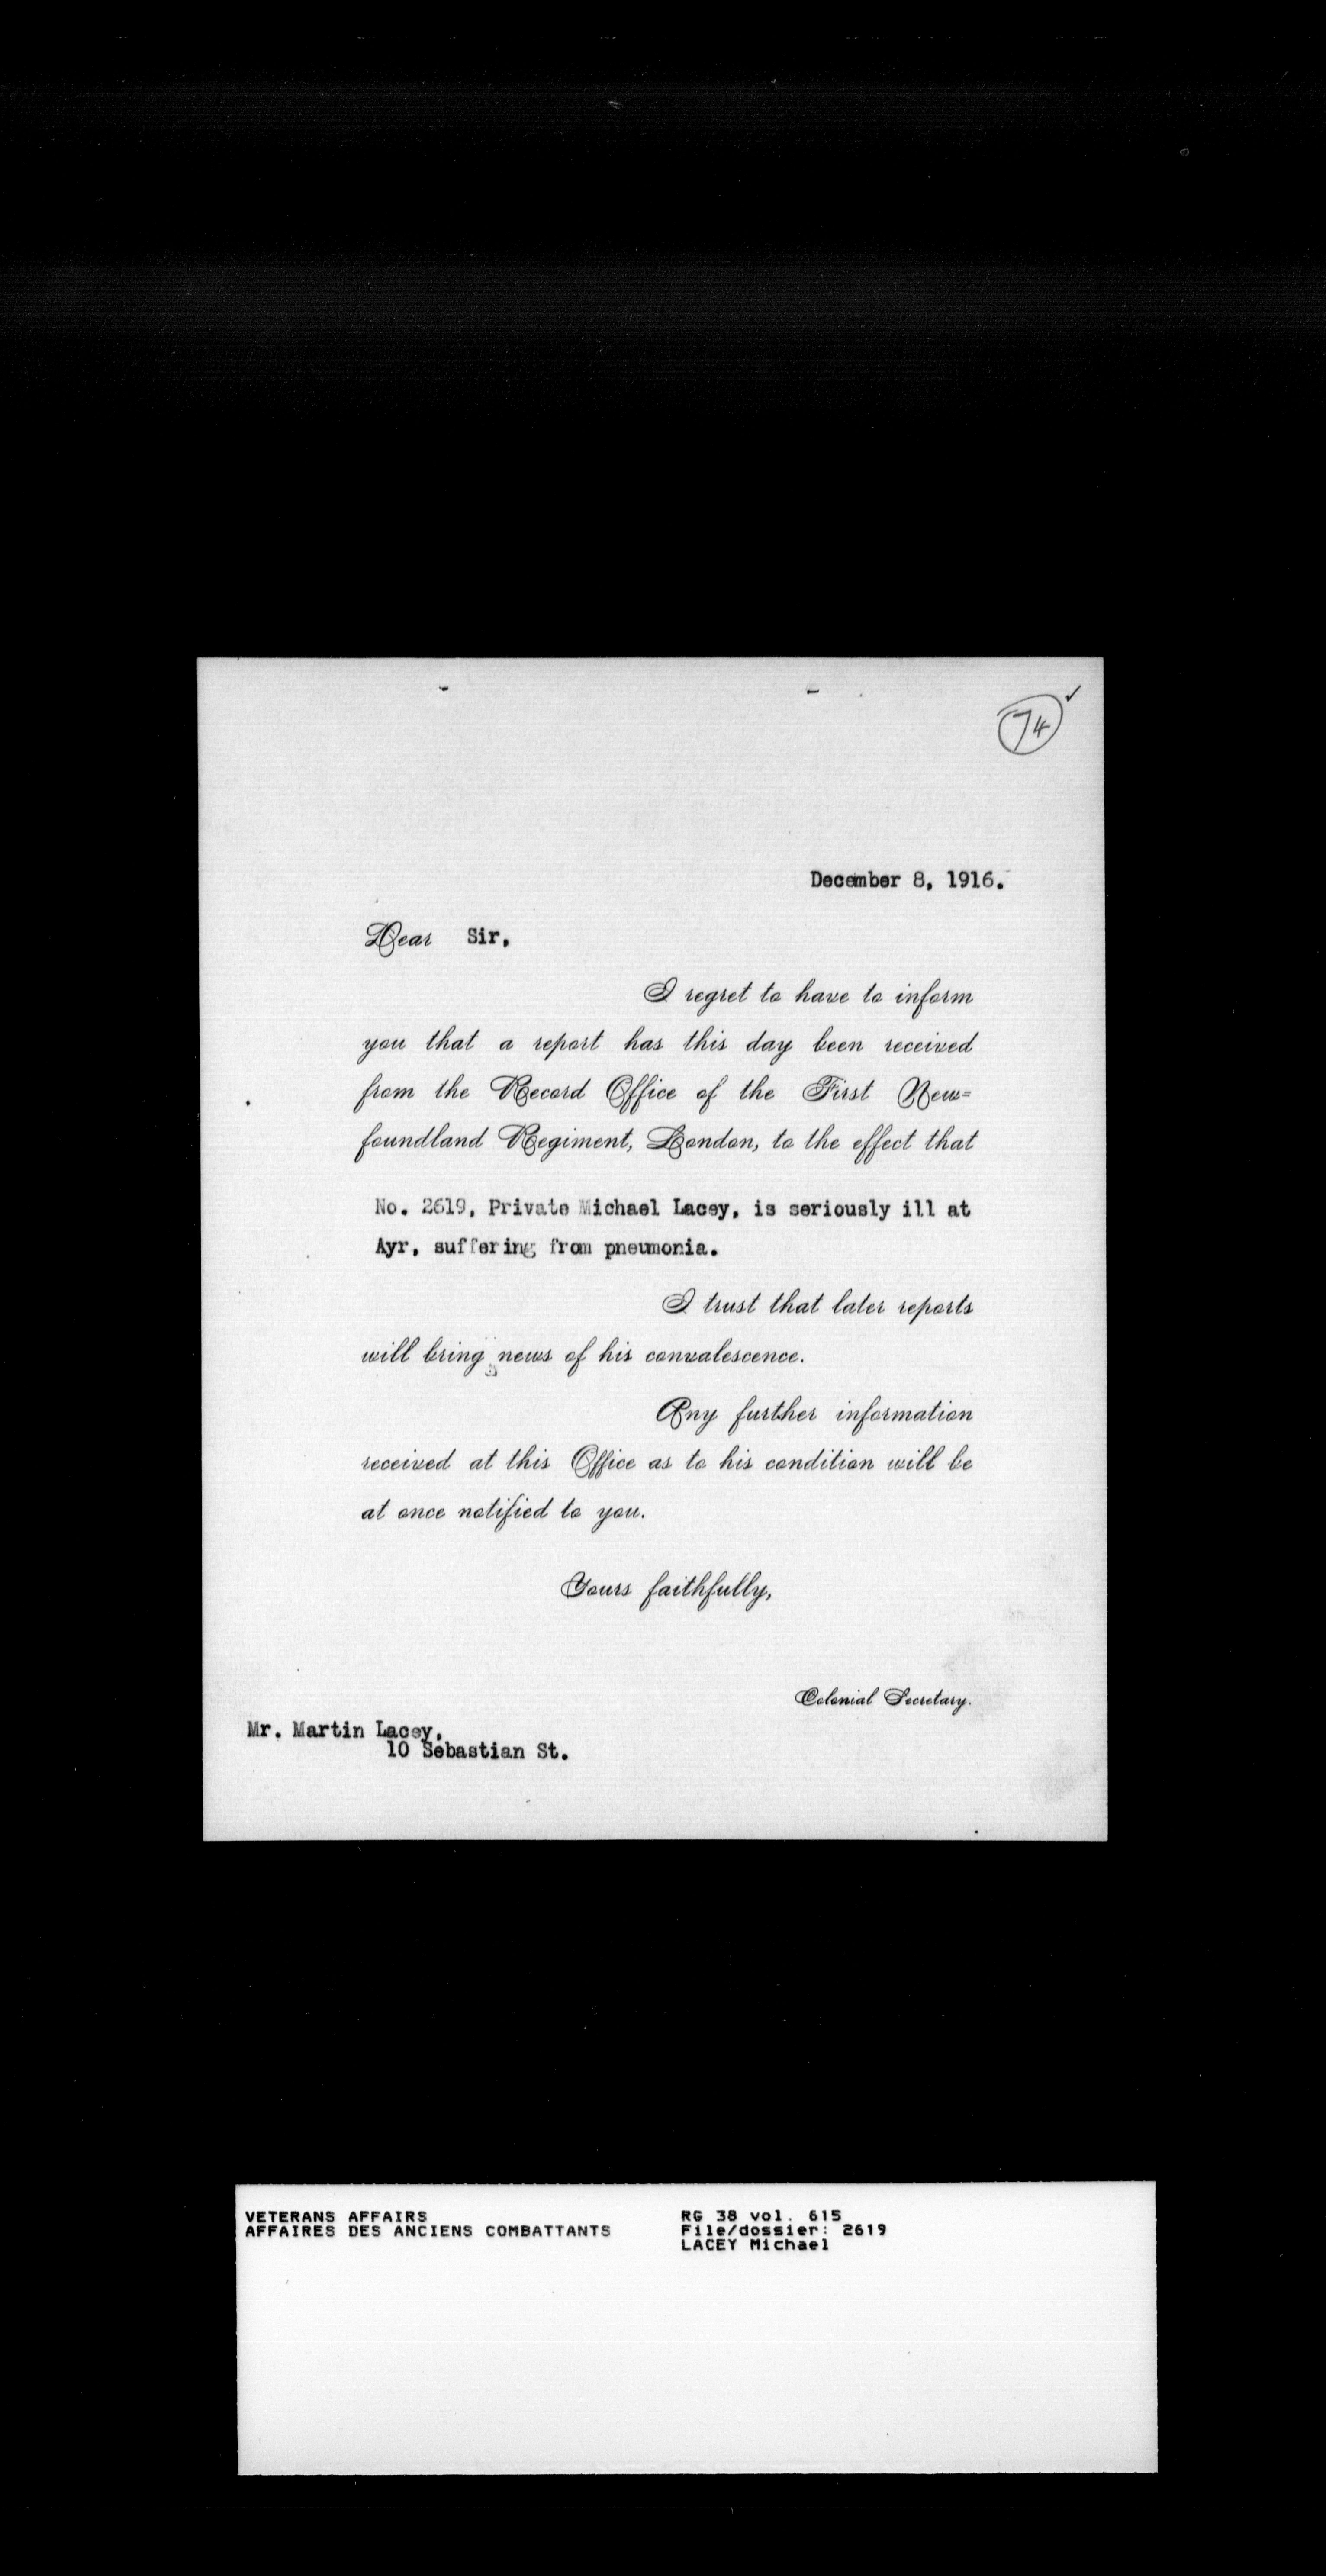 74
December 8, 1916.
Dear Sir,
I regret to have to inform
you that a report has this day been received
from the Record Office of the First New=
foundland Regiment, London, to the effect that
No. 2619, Private Michael Lacey, is seriously ill at
Ayr, suffering from pneumonia.
I trust that later reports
will bring news of his convalescence.
Any further information
received at this Office as to his condition will be
at once notified to you.
Yours faithfully,
Colonial Secretary.
Mr. Martin Lacey,
10 Sebastian St.
VETERANS AFFAIRS
AFFAIRES DES ANCIENS COMBATTANTS
RG 38 vol. 615
File/dossier: 2619
LACEY Michael